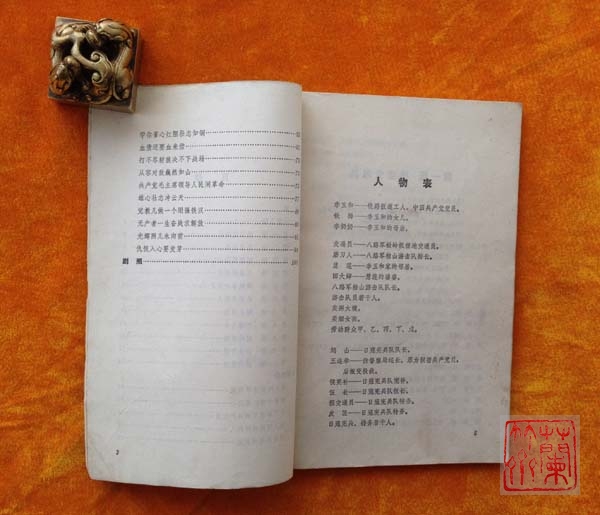 学你害心红胆壮志如钢
血债还要血来偿
打不尽豺狼决不下战场
从容对敌巍然如山
共产党毛主席领导人民闹革命
雄心壮志冲云天
党教儿做一个刚强铁汉
无产者一生奋战求解放
光辉照儿永向前
仇恨入心要发芽
剧照
2
人物表
李玉和——铁路扳道工人。中国共产党党员。
铁梅——李玉和的女儿。
李奶奶——李玉和的母亲。
交通员——八路军松岭根据地交通员。
磨刀人——八路军柏山游击队排长。
慧莲——李玉和家的邻居。
田大婶——慧莲的婆婆。
八路军柏山游击队队长。
游击队队员若干人。
卖烟女孩。
劳动群众甲、乙、丙、丁、戊。
鸠山——日寇宪兵队队长。
王连举——伪警察局巡长。原为秘密共产党员，
后被变投敌。
侯宪补——日寇宪兵队宪补。
伍长——日寇宪兵队伍长。
假交通员——日寇宪兵队特务。
皮匠——日寇宪兵队特务。
日寇宪兵、特务若干人。
蘭